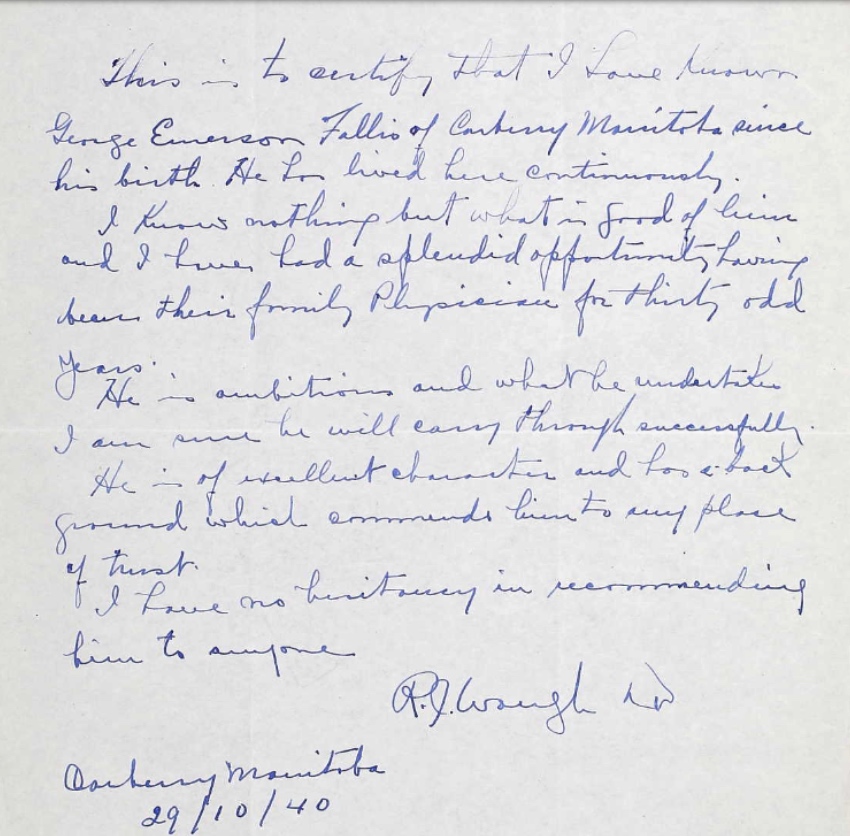 This is to certify that I have known
George Emerson Fallis of Carberry Manitoba since
his birth. He has lived here continuously.
I know nothing but what is good of him
and I have had a splendid opportunity having
been their family Physician for thirty odd
years.
He is ambitious and what he undertakes
I am sure he will carry through successfully.
He is of excellent character and has a back
ground which commends him to any place
of trust.
I have no hesitancy in recommending
him to anyone
R.J. Waugh MD
Carberry Manitoba
29/10/40